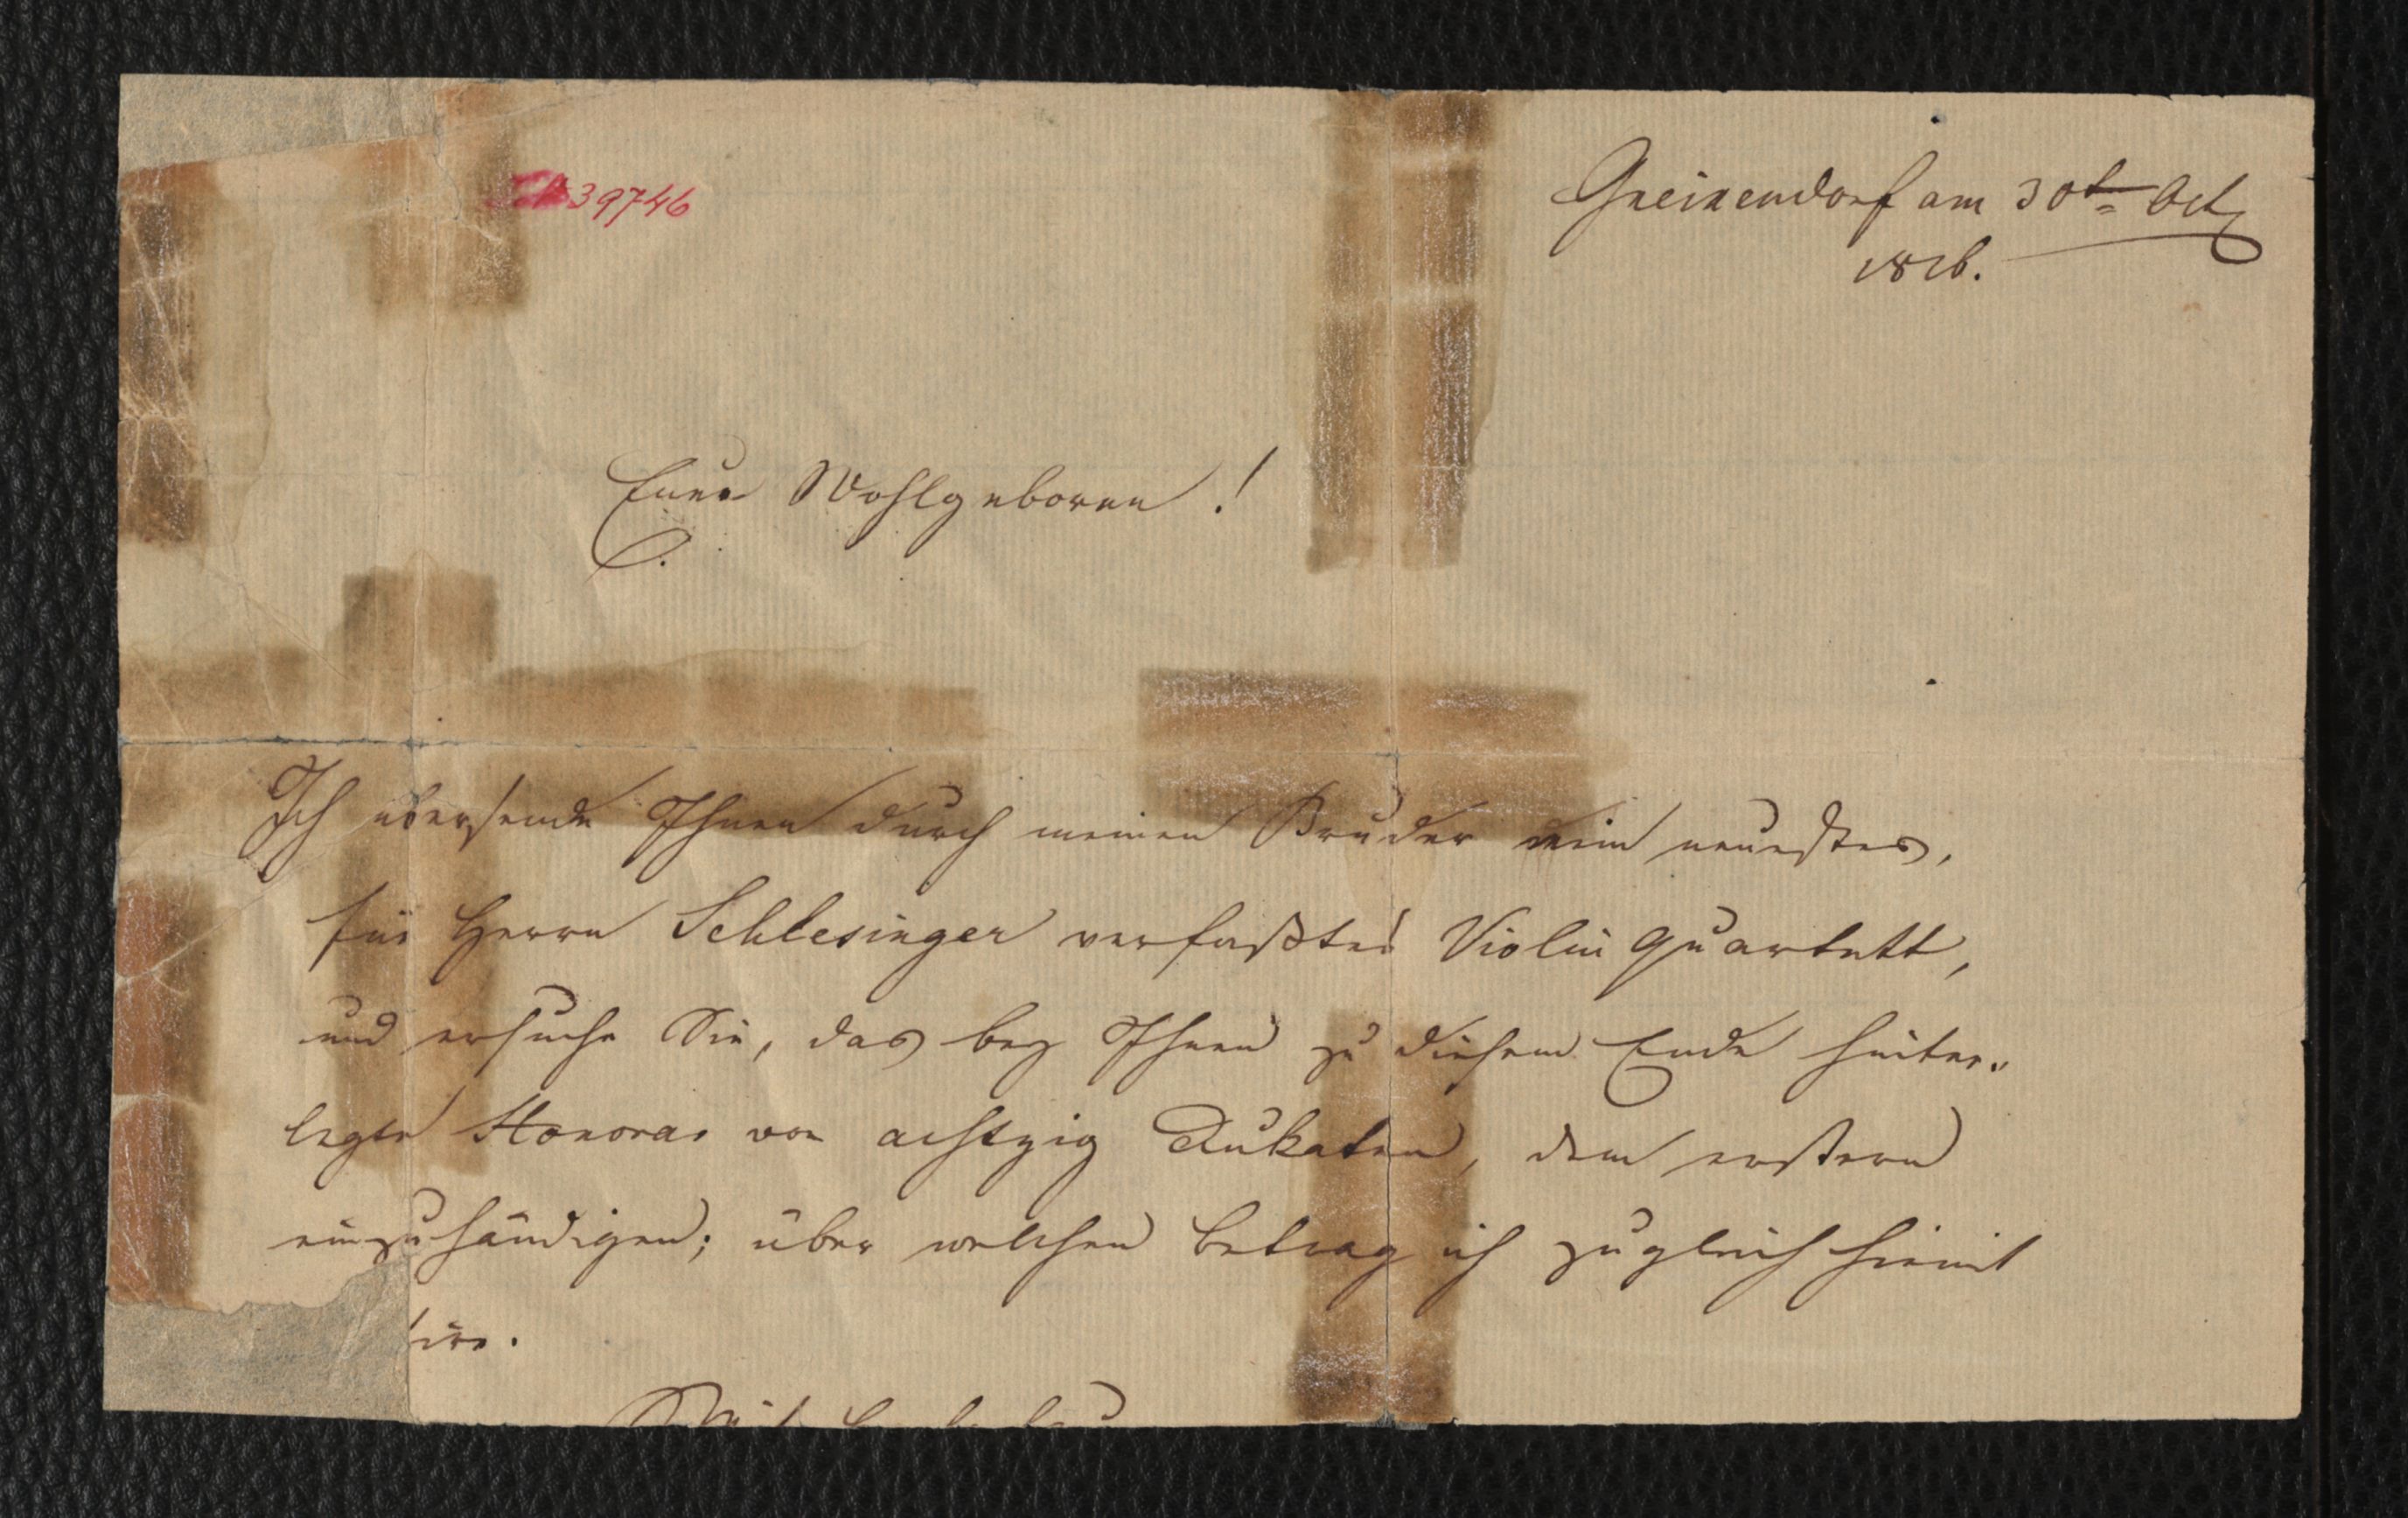 39746
Gneixendorf am 30t Oct
1826.
Euer Wohlgeboren!
Ich übersende Ihnen durch meinen Bruder mein neuestes,
für Herrn Schlesinger verfaßtes Violin quartett,
und ersuche Sie, das bey Ihnen zu diesem Ende hinter„
legte Honorar von achtzig Dukaten, dem erstern
einzuhändigen; über welchen Betrag ich zugleich hiemit
tire.
Mit